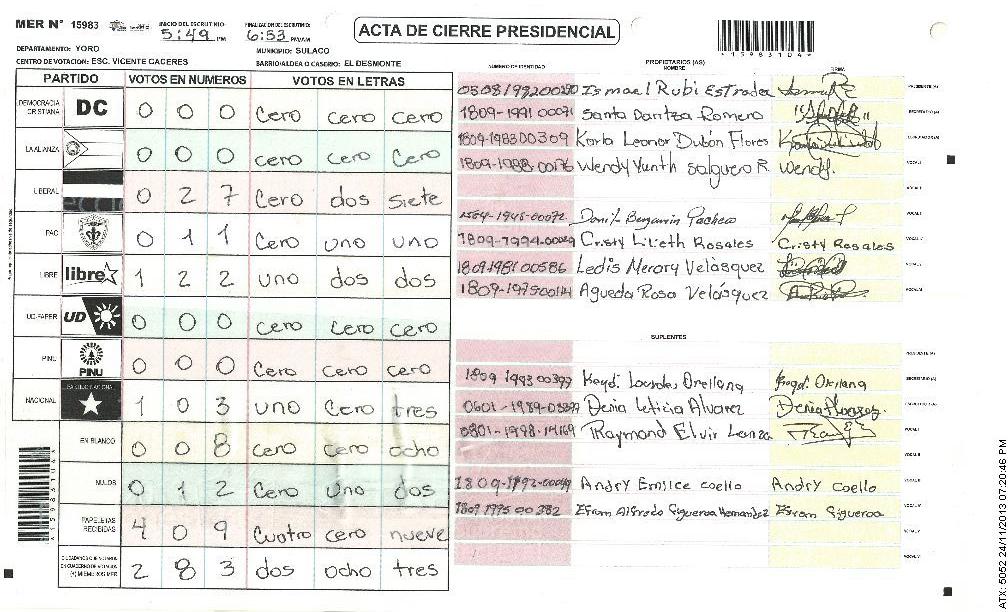 MER Nº 15983 INICIO DEL ESCRUTINIO: 5:49 PM FINALIZACION DEL ESCRUTINIO: 6:53 PM/AM
ACTA DE CIERRE PRESIDENCIAL
DEPARTAMENTO: YORO MUNICIPIO: SULACO
CENTRO DE VOTACION: ESC. VICENTE CACERES BARRIO/ALDEA O CASERIO: EL DESMONTE
PARTIDO VOTOS EN NUMEROS VOTOS EN LETRAS
DEMOCRACIA CRISTIANA DC 0 0 0 Cero cero cero
LA ALIANZA 0 0 0 cero cero cero
LIBERAL 0 2 7 Cero dos siete
PAC 0 1 1 Cero uno uno
LIBRE libre 1 2 2 uno dos dos
UD-FAPER UD 0 0 0 cero cero cero
PINU PINU 0 0 0 Cero cero cero
NACIONAL 1 0 3 uno Cero tres
EN BLANCO 0 0 8 cero cero ocho
NULOS 0 1 2 Cero uno dos
PAPELETAS RECIBIDAS 4 0 9 Cuatro cero nueve
2 8 3 dos ocho tres
NUMERO DE IDENTIDAD PROPIETARIOS (AS) NOMBRE FIRMA
Ismael Rubi Estrada
1809-1991-00071 Santa Daritza Romero
1809-1983 00309 Karla Leonor Dubón Flores
1809-1988-00176 Wendy salguero R. Wendy.
Benjamin Pacheco
Cristy Lizeth Rosales Cristy Rosales
1809 1981 00586 Ledis Merary Velàsquez
Agueda Rosa Velásquez
SUPLENTES
1809 1993 00397 Lourdes Orellana Orellana
Denia Leticia Alvarez Denia Alvarez.
Raymond Elvir
Andry coello Andry Coello
1807 1995 00382 Efram Alfredo Figueroa Hernandez Efram Figueroa
15983104
ATX: 5052 24/11/2013 07:20:46 PM